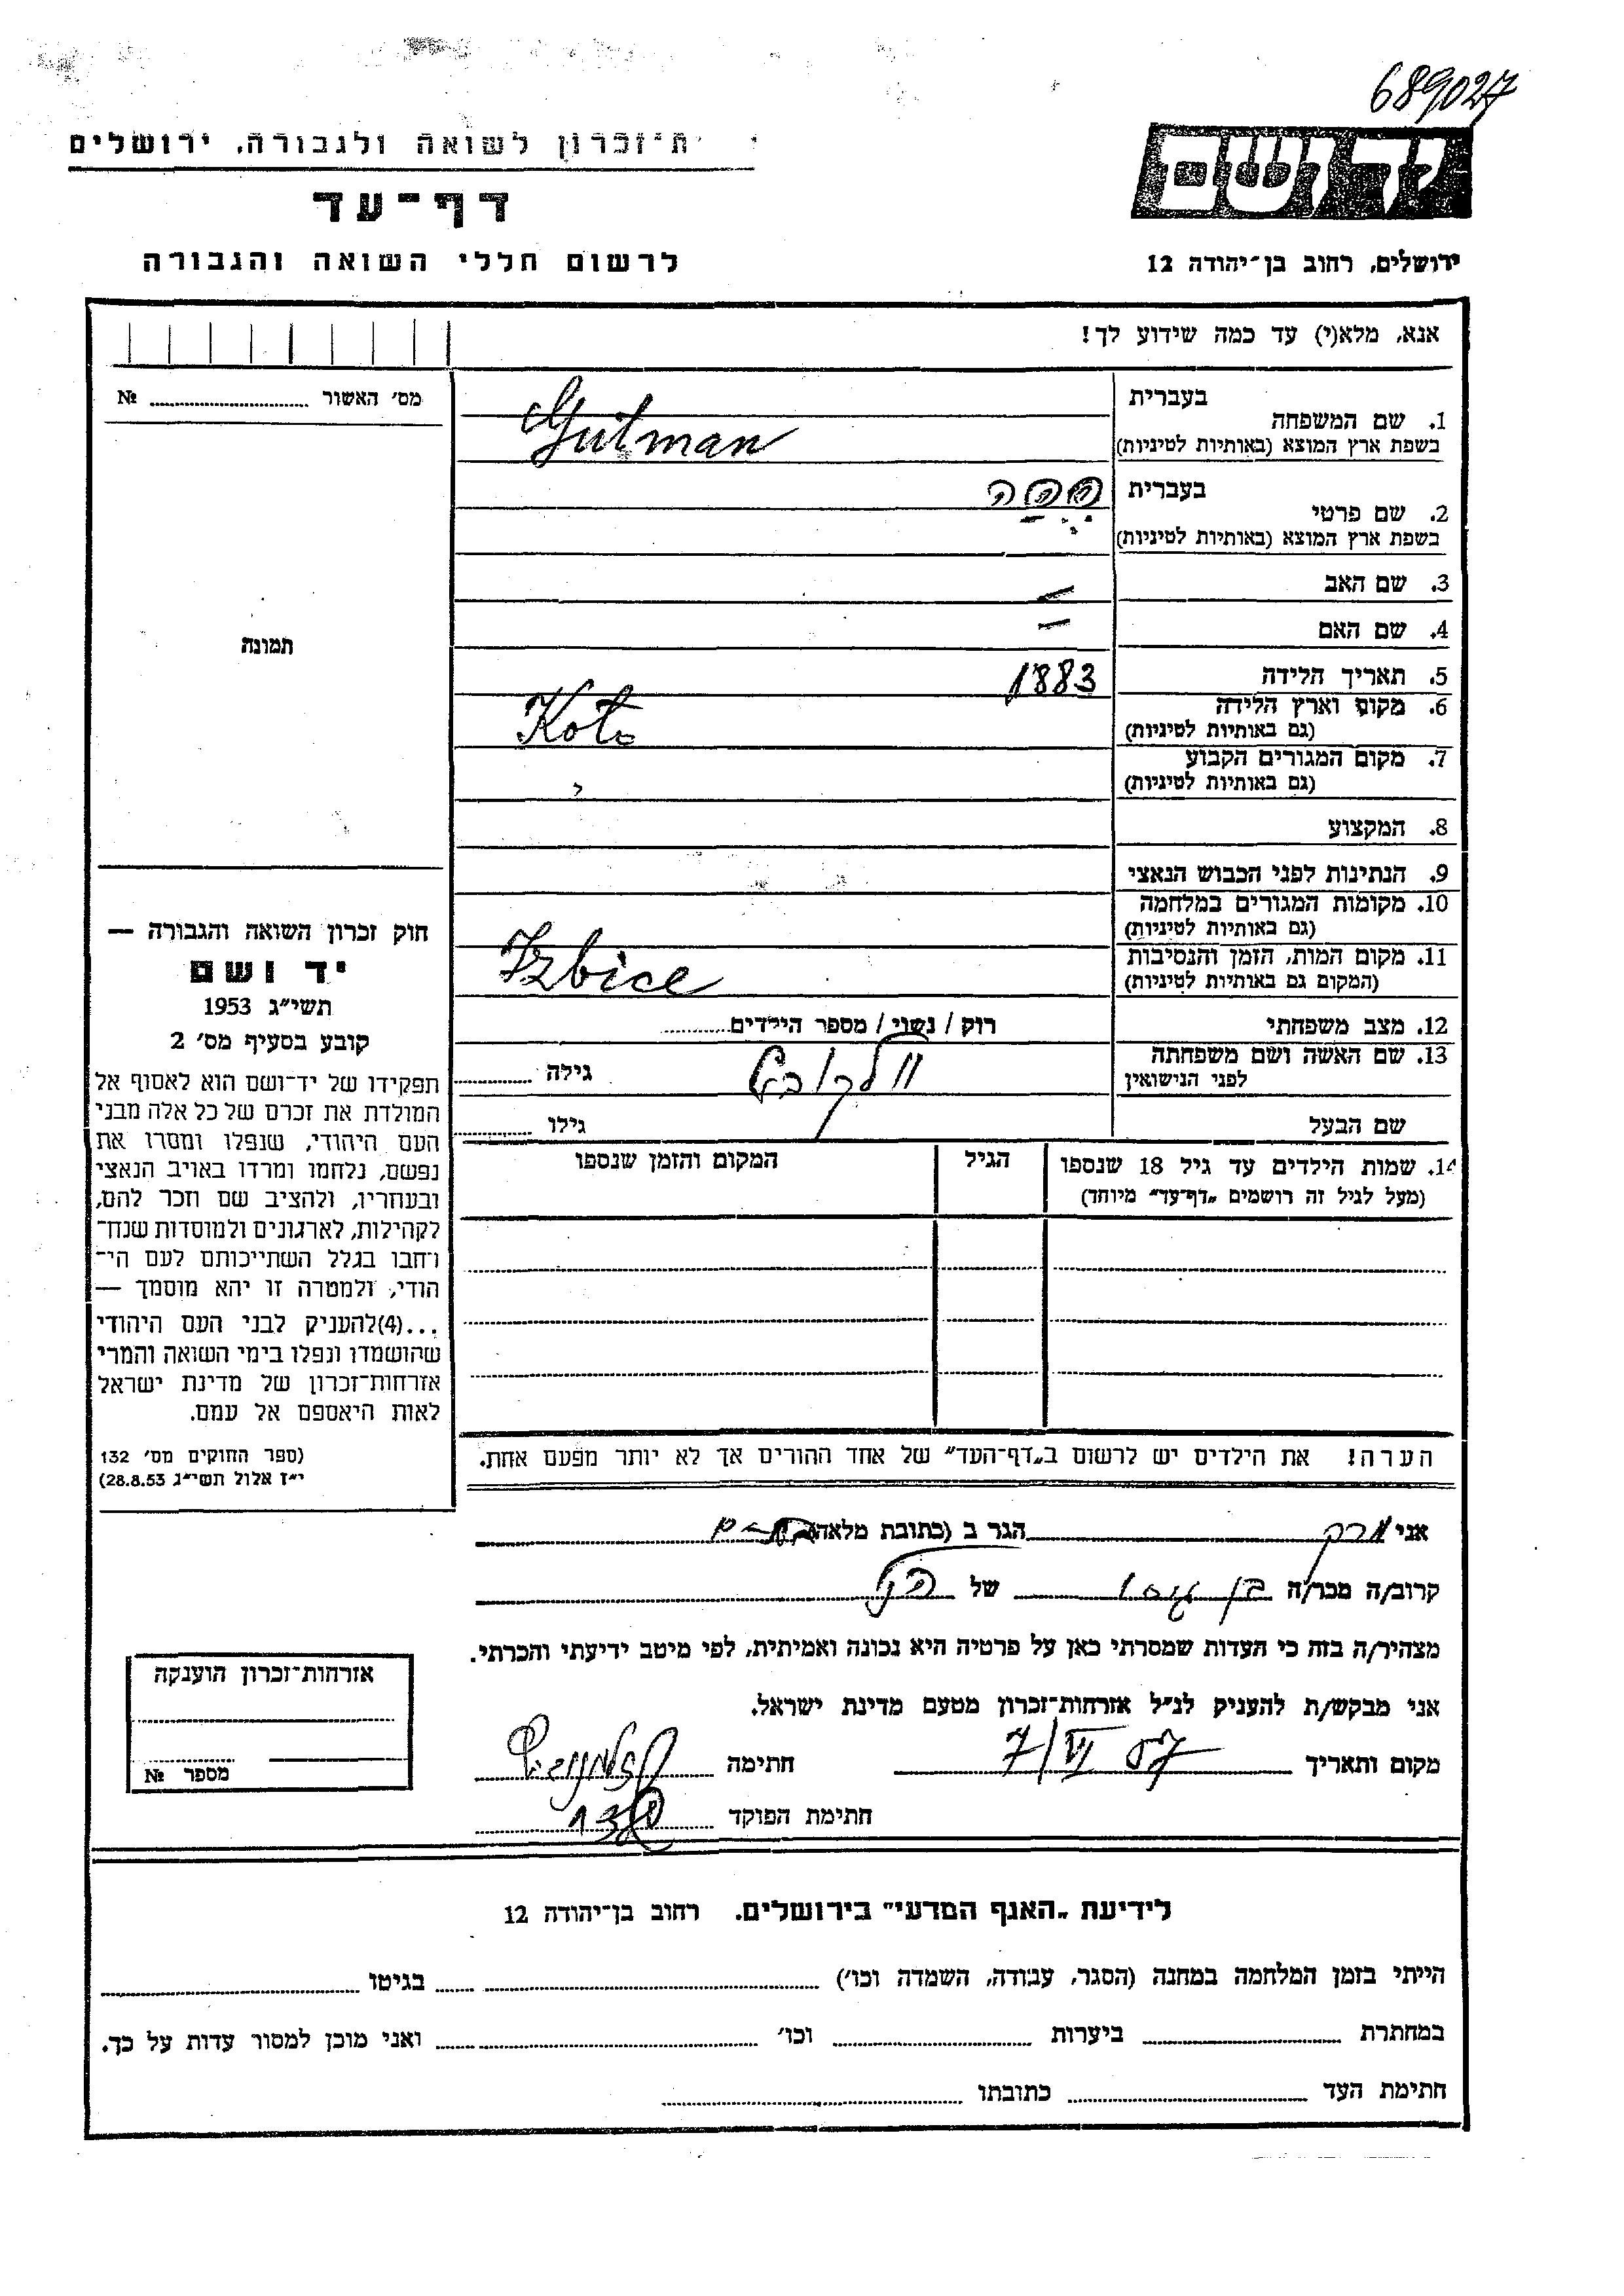 689027
יד ושם
ת־זכרון לשואה ולגבורה, ירושלים
דף־עד
ירושלים, רחוב בן־יהודה 12
לרשום חללי השואה והגבורה
אנא, מלא(י) עד כמה שידוע לך!
מס׳ האשור № ........
בעברית
1. שם המשפחה
בשפת ארץ המוצא (באותיות לטיניות)
Gutman
בעברית
2. שם פרטי
בשפת ארץ המוצא (באותיות לטיניות)
3. שם האב —
4. שם האם —
תמונה
5. תאריך הלידה 1883
6. מקום וארץ הלידה
(גם באותיות לטיניות)
7. מקום המגורים הקבוע
(גם באותיות לטיניות)
8. המקצוע
9. הנתינות לפני הכבוש הנאצי
10. מקומות המגורים במלחמה
(גם באותיות לטיניות)
11. מקום המות, הזמן והנסיבות
(המקום גם באותיות לטיניות)
Izbice
12. מצב משפחתי רוק / נשוי / מספר הילדים........
13. שם האשה ושם משפחתה
לפני הנישואין
גילה ........
שם הבעל גילו ........
14. שמות הילדים עד גיל 18 שנספו
(מעל לגיל זה רושמים „דף־עד״ מיוחד)
הגיל
המקום והזמן שנספו
חוק זכרון השואה והגבורה —
יד ושם
תשי״ג 1953
קובע בסעיף מס׳ 2
תפקידו של יד־ושם הוא לאסוף אל
המולדת את זכרם של כל אלה מבני
העם היהודי, שנפלו ומסרו את
נפשם, נלחמו ומרדו באויב הנאצי
ובעוזריו, ולהציב שם וזכר להם,
לקהילות, לארגונים ולמוסדות שנח־
רחבו בגלל השתייכותם לעם הי־
הודי, ולמטרה זו יהא מוסמך —
...(4)להעניק לבני העם היהודי
שהושמדו ונפלו בימי השואה והמרי
אזרחות־זכרון של מדינת ישראל
לאות היאספם אל עמם.
(ספר החוקים מס׳ 132
י״ז אלול תשי״ג 28.8.53)
הערה! את הילדים יש לרשום ב„דף־העד״ של אחד ההורים אך לא יותר מפעם אחת.
אני הגר ב (כתובת מלאה)
קרוב/ה מכר/ה של
מצהיר/ה בזה כי העדות שמסרתי כאן על פרטיה היא נכונה ואמיתית, לפי מיטב ידיעתי והכרתי.
אני מבקש/ת להעניק לנ״ל אזרחות־זכרון מטעם מדינת ישראל.
מקום ותאריך 7/VI 57 חתימה
חתימת הפוקד
אזרחות־זכרון הוענקה
מספר №
לידיעת „האגף המדעי״ בירושלים. רחוב בן־יהודה 12
הייתי בזמן המלחמה במחנה (הסגר, עבודה, השמדה וכו׳) ........ בגיטו ........
במחתרת ........ ביערות ........ וכו׳ ........ ואני מוכן למסור עדות על כך.
חתימת העד ........ כתובתו ........